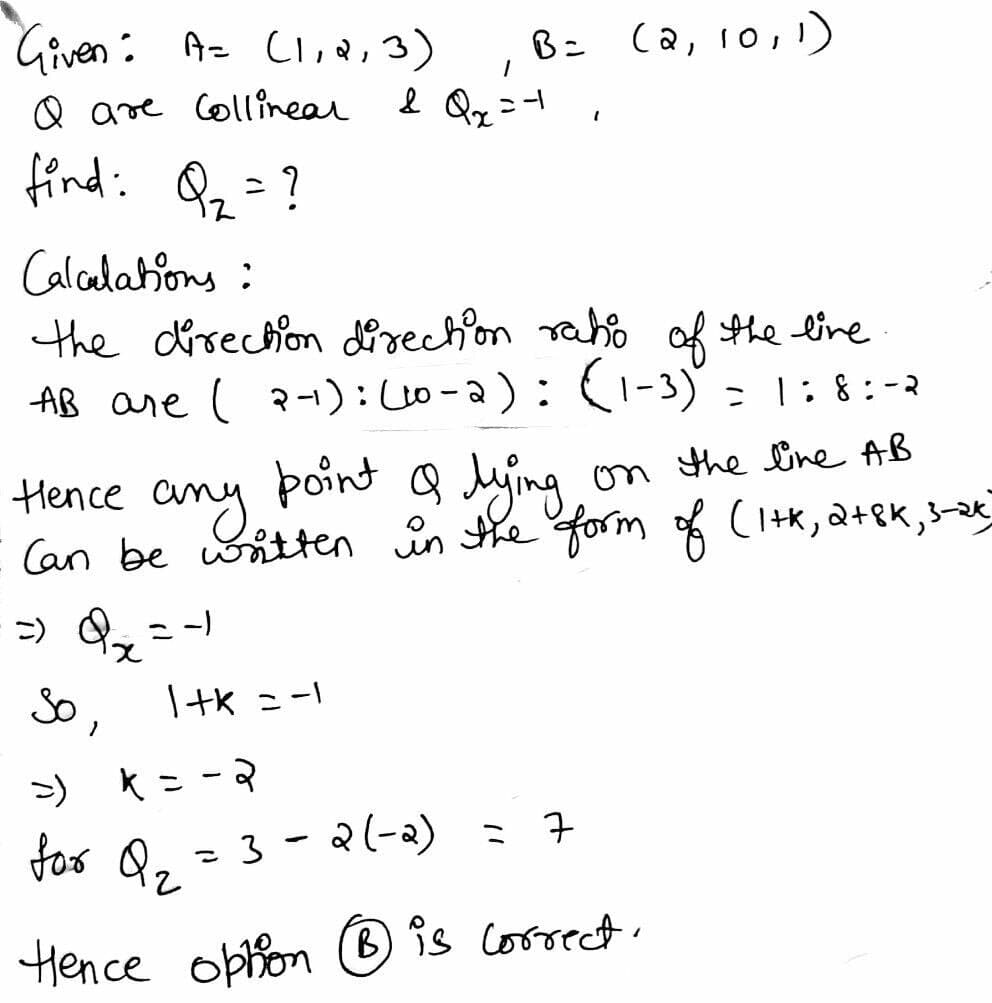 Given: A= (1,2,3) , B= (2, 10, 1)
Q are Collinear & Qx=-1 ,
find: Qz = ?
Calculations :
the direction direction ratio of the line
AB are ( 2-1):(10-2) : (1-3) = 1:8:-2
Hence any point Q lying on the line AB
Can be written in the form of (1+K, 2+8K, 3-2K)
=) Qx = -1
So, 1+K = -1
=) K = -2
for Qz = 3 - 2(-2) = 7
Hence option (B) is Correct.